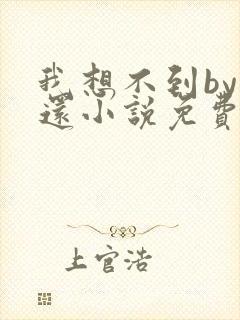 我想不到by
還小説免費
上官浩